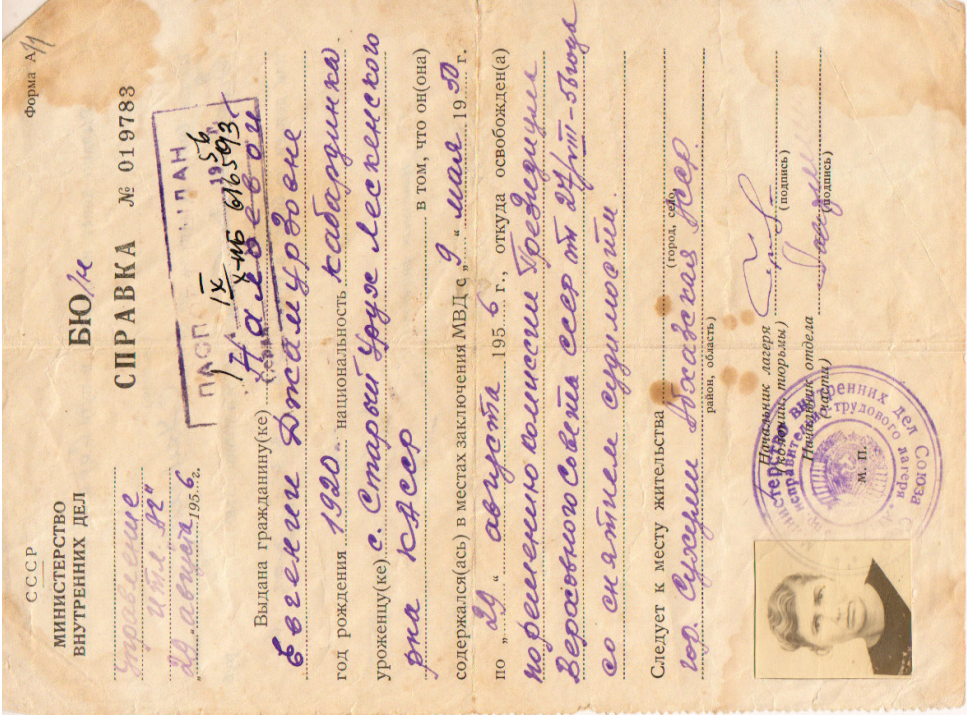 Форма А/1
СССР
МИНИСТЕРСТВО
ВНУТРЕННИХ ДЕЛ
Управление
ИТЛ „АЧ"
„29" августа 1956 г.
БЮ/н
СПРАВКА № 019783
ПАСП
1956
IX
616593
Выдана гражданину(ке) Налоевой
Евгении Джамурзовне
год рождения 1920 национальность кабардинка
уроженцу(ке) с. Старый Урух Лескенского
рна КАССР в том, что он(она)
содержался(ась) в местах заключения МВД с „9" мая 1950 г.
по „29" августа 1956 г., откуда освобожден(а)
по решению комиссии Президиума
Верховного Совета СССР от 27/VIII-56 года
со снятием судимости.
Следует к месту жительства
(город, село,
гор. Сухуми Абхазская АССР
район, область)
Начальник лагеря
(колонии, тюрьмы)
(подпись)
Начальник отдела
(части)
(подпись)
М. П.
Министерство внутренних дел Союза
исправительно-трудового лагеря